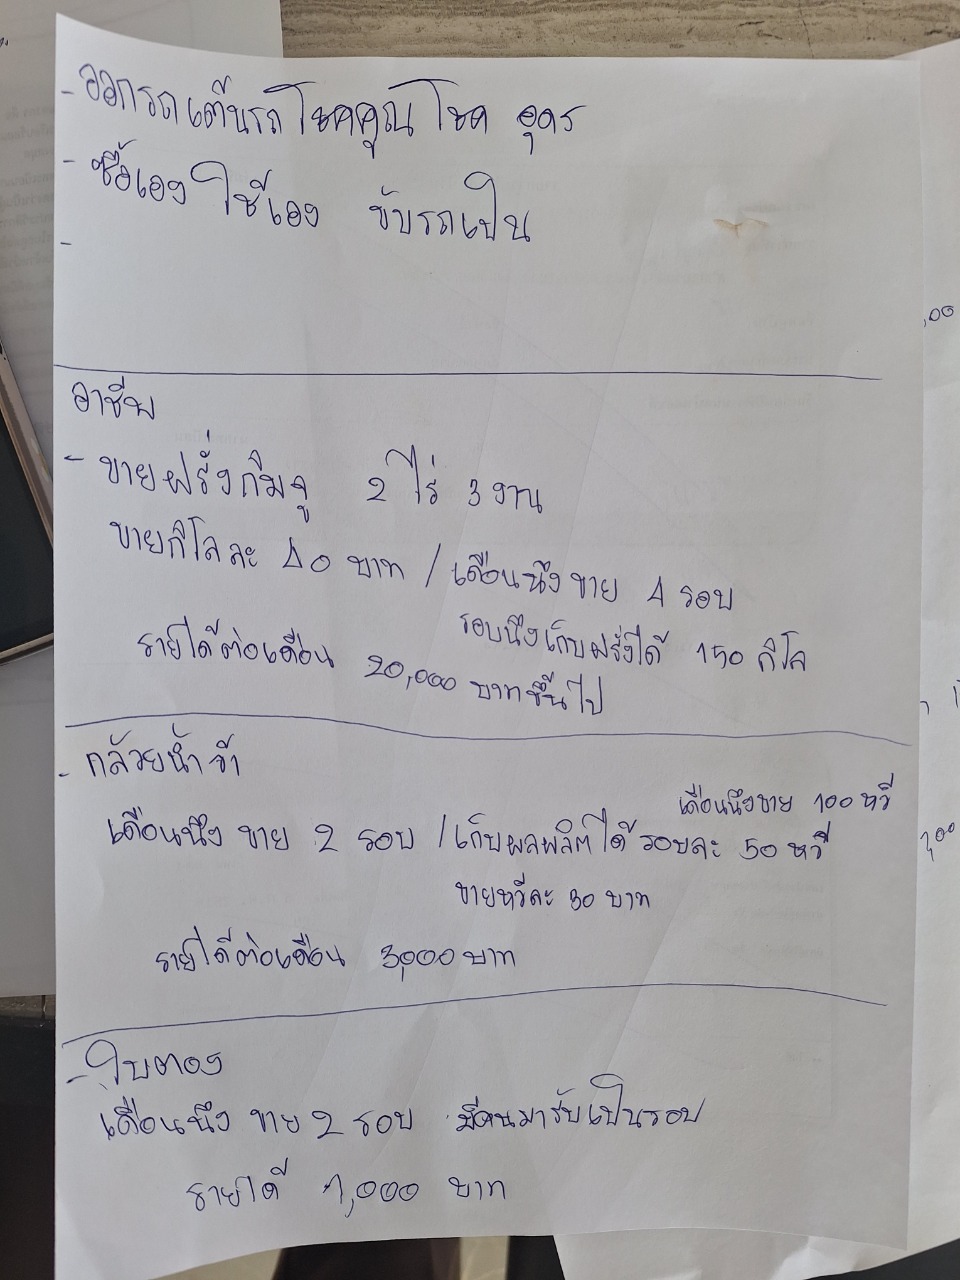 - ออกรถเต๊นรถโชคคูณโชค อุดร
- ซื้อเอง ใช้เอง ขับรถเป็น
-
อาชีพ
- ขายฝรั่งกิมจู 2 ไร่ 3 งาน
ขายกิโลละ 40 บาท / เดือนนึงขาย 4 รอบ
รอบนึงเก็บฝรั่งได้ 150 กิโล
รายได้ต่อเดือน 20,000 บาทขึ้นไป
- กล้วยน้ำว้า
เดือนนึงขาย 100 หวี
เดือนนึง ขาย 2 รอบ / เก็บผลผลิตได้ รอบละ 50 หวี
ขายหวีละ 30 บาท
รายได้ต่อเดือน 3,000 บาท
- ใบตอง
เดือนนึง ขาย 2 รอบ มีคนมารับเป็นรอบ
รายได้ 1,000 บาท